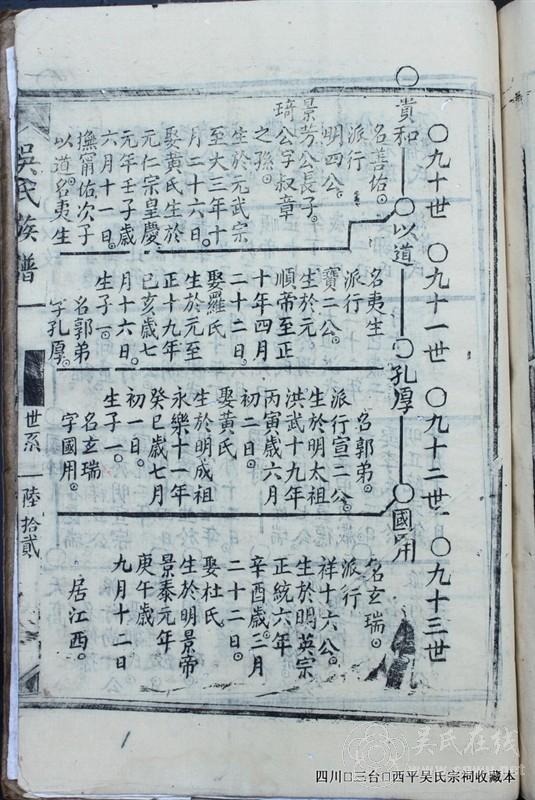 〇九十世 〇九十一世 〇九十二世 〇九十三世
〇貴和 〇以道 〇孔厚 〇國用
名善佑。
派行
明四公。
景芳公長子。
琦公字叔章
之孫。
生於元武宗
至大三年十
月二十六日。
娶黃氏生於
元仁宗皇慶
元年壬子歲
六月十一日。
撫甯佑次子
以道名夷生
名夷生
派行
寶二公。
生於元。
順帝至正
十年四月
二十二日。
娶羅氏
生於元至
正十九年
已亥歲七
月十六日。
生子一。
名郭弟
字孔厚。
名郭弟。
派行宣二公。
生於明太祖
洪武十九年
丙寅歲六月
初二日。
娶黃氏
生於明成祖
永樂十一年
癸巳歲七月
初一日。
生子一。
名玄瑞
字國用。
名玄瑞。
派行
祥十六公。
生於明英宗
正統六年
辛酉歲二月
二十二日。
娶杜氏
生於明景帝
景泰元年
庚午歲
九月十二日
居江西。
吳氏族譜
世系
陸拾貳
吴氏在线
四川□三台□西平吴氏宗祠收藏本